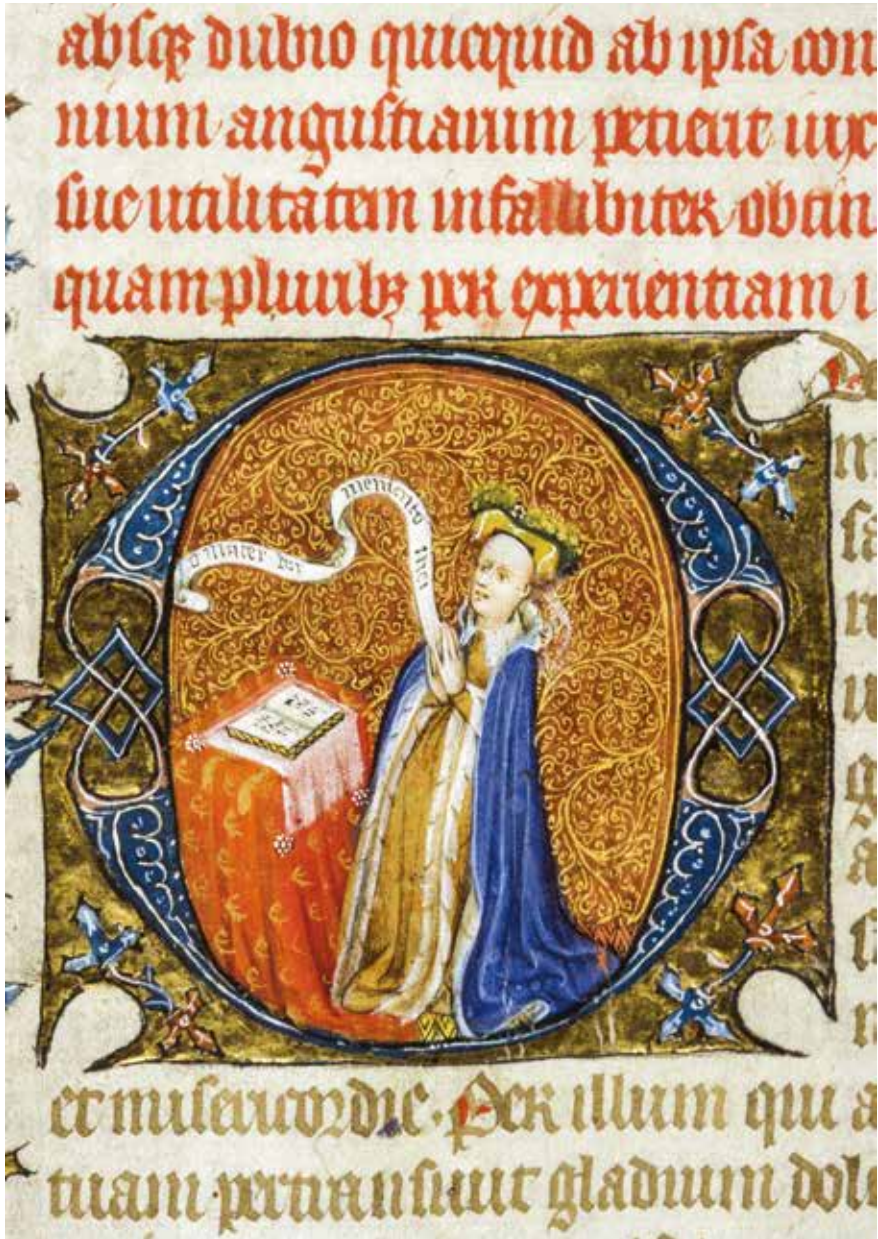 absqꝫ dubio quicquid ab ipsa con
nium angustiarum petierit
sue utilitatem infallibiter obtin
quampluribꝫ per experientiam i
O
o mater dei memento mei
m
sa
et misericordie. Per illum qui a
tuam pertransiuit gladium dol